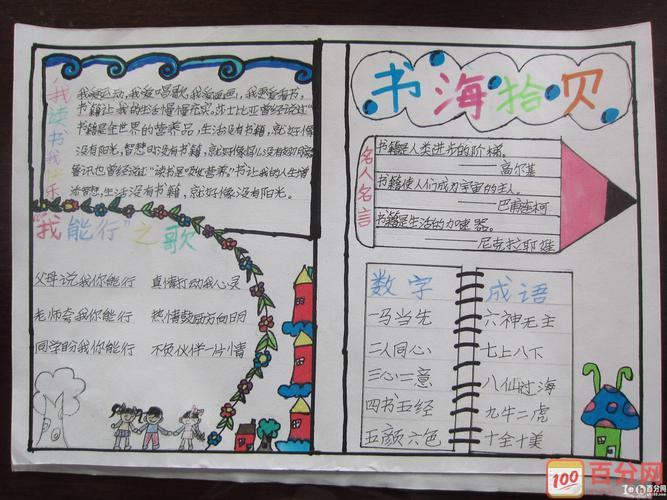 我读书我快乐
我爱运动,我爱唱歌,我爱画画,我更爱看书,
书籍让我的生活慢慢充实。莎士比亚曾经说过"
书籍是全世界的营养品,生活没有书籍,就好像
没有阳光,智慧里没有书籍,就好像
鲁讯也曾经说过"读书是
生活没有书籍,就好像没有阳光。
"我能行"之歌
父母说我你能行 真情打动我心灵
老师夸我你能行 热情鼓励方向明
同学盼我你能行 不负伙伴一片情
书海拾贝
名人名言
书籍是人类进步的阶梯。
高尔基
书籍使人们成为宇宙的主人。
——巴甫连柯
书籍是生活的加速器。
——尼克拉耶娃
数字 成语
一马当先 六神无主
二人同心 七上八下
三心二意 八仙过海
四书五经 九牛二虎
五颜六色 十全十美
100 百分网
百分网